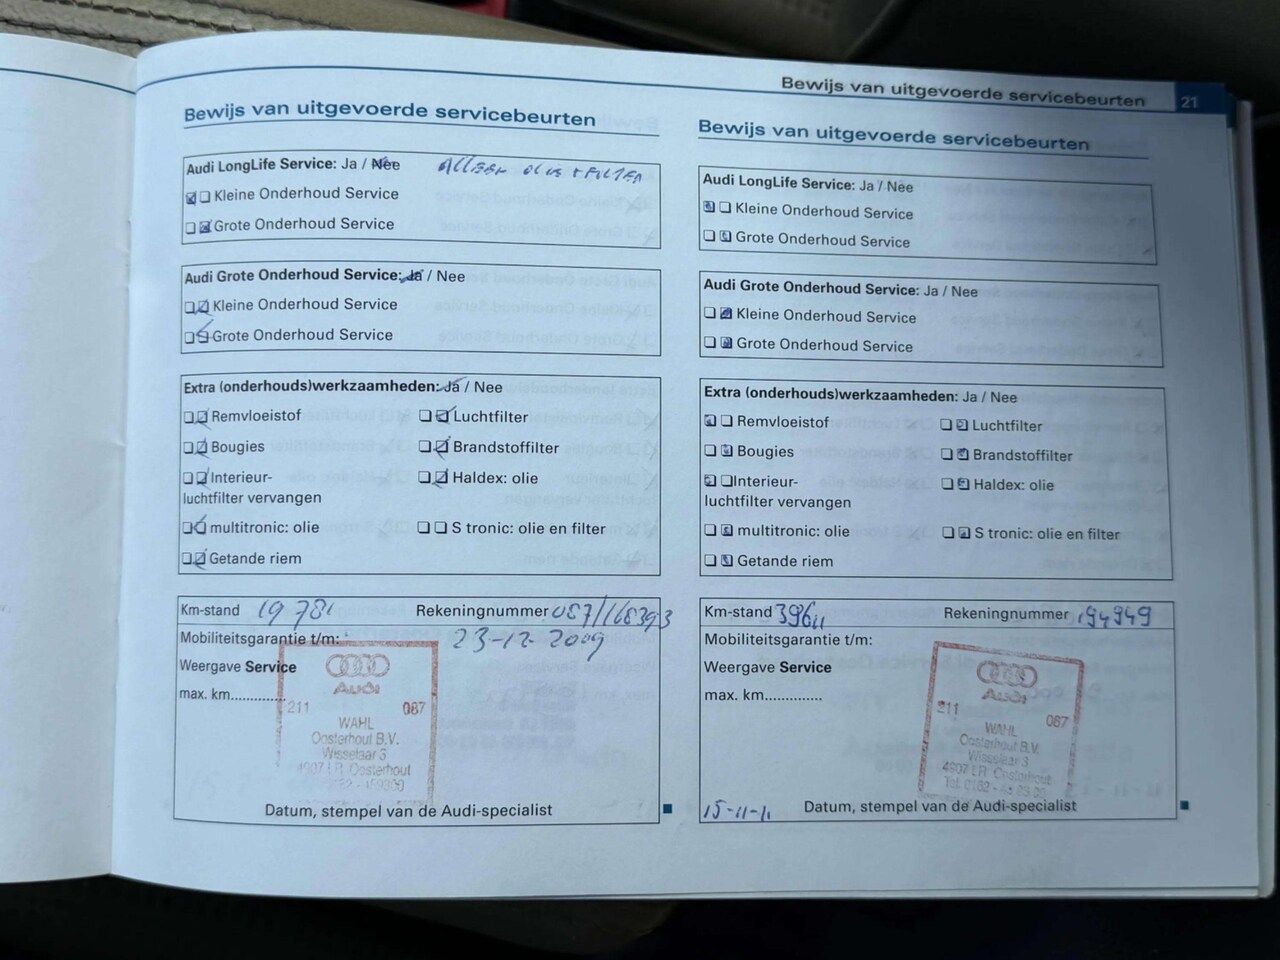 Bewijs van uitgevoerde servicebeurten 21
Bewijs van uitgevoerde servicebeurten
Audi LongLife Service: Ja / Nee ALLEEN OLIE + FILTER
Kleine Onderhoud Service
Grote Onderhoud Service
Audi Grote Onderhoud Service: Ja / Nee
Kleine Onderhoud Service
Grote Onderhoud Service
Extra (onderhouds)werkzaamheden: Ja / Nee
Remvloeistof Luchtfilter
Bougies Brandstoffilter
Interieur- Haldex: olie
luchtfilter vervangen
multitronic: olie S tronic: olie en filter
Getande riem
Km-stand 19781 Rekeningnummer 087/168393
Mobiliteitsgarantie t/m: 23-12-2009
Weergave Service
max. km..............
Audi
211 087
WAHL
Oosterhout B.V.
Wisselaar 3
4907 LR Oosterhout
Datum, stempel van de Audi-specialist
Bewijs van uitgevoerde servicebeurten
Audi LongLife Service: Ja / Nee
Kleine Onderhoud Service
Grote Onderhoud Service
Audi Grote Onderhoud Service: Ja / Nee
Kleine Onderhoud Service
Grote Onderhoud Service
Extra (onderhouds)werkzaamheden: Ja / Nee
Remvloeistof Luchtfilter
Bougies Brandstoffilter
Interieur- Haldex: olie
luchtfilter vervangen
multitronic: olie S tronic: olie en filter
Getande riem
Km-stand 39611 Rekeningnummer 194949
Mobiliteitsgarantie t/m:
Weergave Service
max. km..............
Audi
211 087
WAHL
Oosterhout B.V.
Wisselaar 3
4907 LR Oosterhout
15-11-11 Datum, stempel van de Audi-specialist